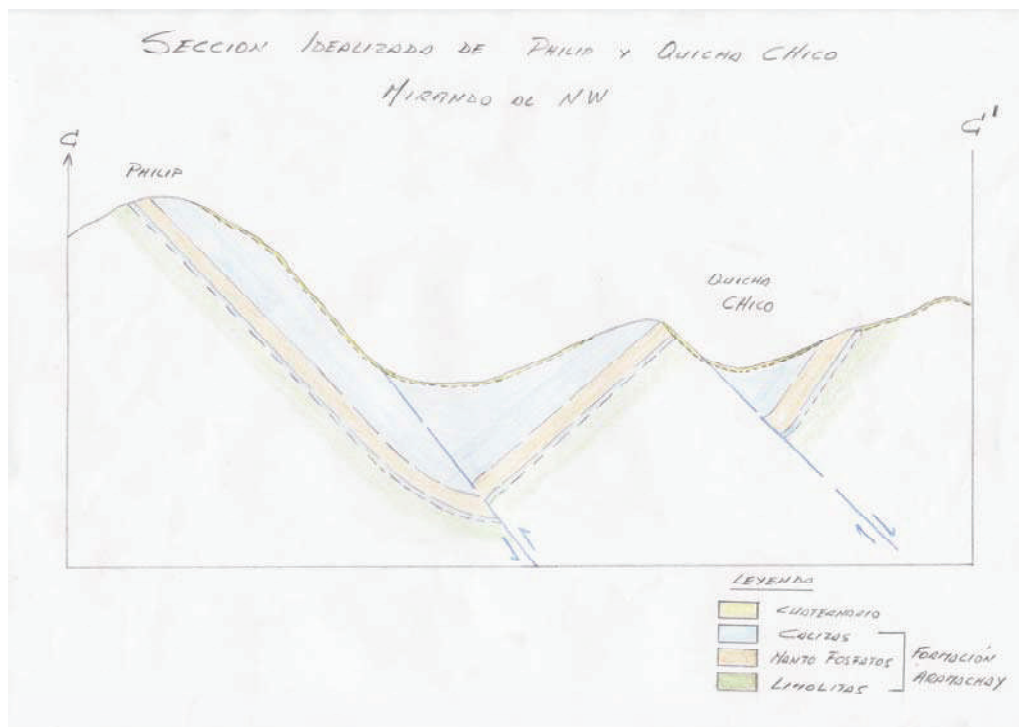 SECCION IDEALIZADA DE PHILIP Y QUICHA CHICO
MIRANDO AL NW
G
G'
PHILIP
QUICHA
CHICO
LEYENDA
CUATERNARIO
CALIZAS
MANTO FOSFATOS
LIMOLITAS
FORMACIÓN
ARAMACHAY